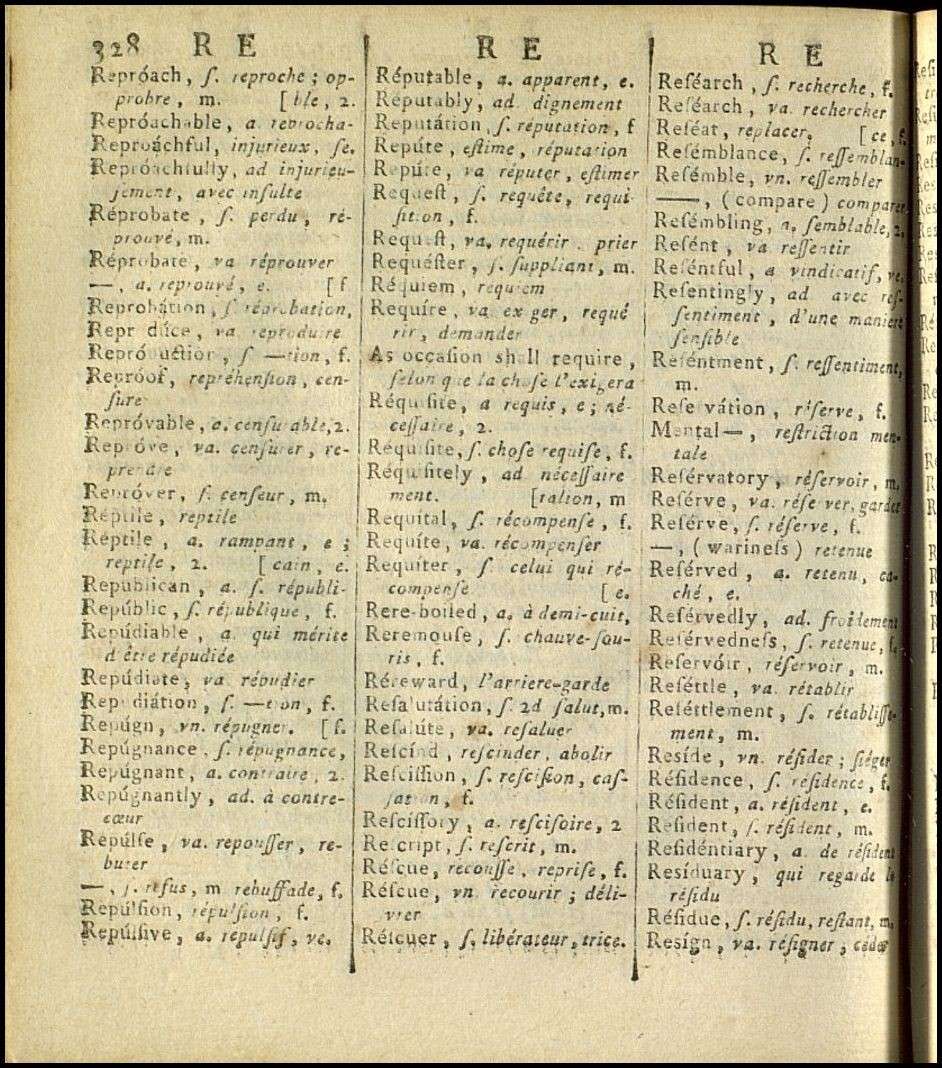 328 R E
Repróach, ſ. reproche ; op-
probre, m. [ble, 2.
Repróachable, a. reprocha-
Repróachful, injurieux, ſe.
Repróachfully, ad injurieu-
ſement, avec inſulte
Réprobate, ſ. perdu, ré-
prouvé, m.
Réprobate, va réprouver
—, a. reprouvé, e. [f
Reprobátion, ſ réprobation,
Repr dúce, va reproduire
Repróduction, ſ —tion, f.
Repróof, repréhenſion, cen-
ſure
Repróvable, a. cenſurable, 2.
Repróve, va. cenſurer, re-
prendre
Repróver, ſ. cenſeur, m.
Réptile, reptile
Réptile, a. rampant, e ;
reptile, 2. [cain, e.
Repúblican, a. ſ. républi-
Repúblic, ſ. république, f.
Repúdiable, a. qui mérite
d'être répudiée
Repúdiate, va. répudier
Repudiátion, ſ. —tion, f.
Repúgn, vn. répugner. [f.
Repúgnance, ſ. répugnance,
Repúgnant, a. contraire, 2.
Repúgnantly, ad. à contre-
cœur
Repúlſe, va. repouſſer, re-
buter
—, ſ. refus, m rebuffade, f.
Repúlſion, répulſion, f.
Repúlſive, a. repulſif, ve.
R E
Réputable, a. apparent, e.
Réputably, ad dignement
Reputátion, ſ. réputation, f
Repúte, eſtime, réputation
Repúte, va réputer, eſtimer
Requeſt, ſ. requête, requi
ſition, f.
Requeſt, va. requérir . prier
Requéſter, ſ. ſuppliant, m.
Réquiem, requiem
Requíre, va. ex ger, requé
rir, demander
As occaſion shall require,
ſelon que la choſe l'exigera
Réquiſite, a requis, e ; né-
ceſſaire, 2.
Réquiſite, ſ. choſe requiſe, f.
Réquiſitely, ad néceſſaire
ment. [talion, m
Requítal, ſ. récompenſe, f.
Requíte, va. récompenſer
Requiter, ſ. celui qui ré-
compenſe [e.
Rere-boiled, a. à demi-cuit,
Reremouſe, ſ. chauve-ſou-
ris, f.
Réreward, l'arriere-garde
Reſalutátion, ſ. 2d ſalut, m.
Reſalúte, va. reſaluer
Reſcínd, reſcinder, abolir
Reſcíſſion, ſ. reſciſion, caſ-
ſation, f.
Reſcíſſory, a. reſciſoire, 2
Reſcript, ſ. reſcrit, m.
Réſcue, recouſſe, repriſe, f.
Réſcue, vn. recourir ; déli-
vrer
Réſcuer, ſ, libérateur, trice.
R E
Reſéarch, ſ. recherche, f.
Reſéarch, va. rechercher
Reſéat, replacer. [ce, f.
Reſémblance, ſ. reſſemblan-
Reſémble, vn. reſſembler
—, (compare) comparer
Reſémbling, a. ſemblable, 2.
Reſént, va reſſentir
Reſéntful, a vindicatif, ve.
Reſentingly, ad avec reſ-
ſentiment, d'une maniere
ſenſible
Reſéntment, ſ. reſſentiment,
m.
Reſe vátion, réſerve, f.
Mental—, reſtriction men-
tale
Reſérvatory, réſervoir, m.
Reſérve, va. réſe ver, garder
Reſérve, ſ. réſerve, f.
—, (warineſs) retenue
Reſérved, a. retenu, ca-
ché, e.
Reſérvedly, ad. froidement
Reſérvedneſs, ſ. retenue, f.
Reſervóir, réſervoir, m.
Reſéttle, va. rétablir
Reſéttlement, ſ. rétabliſſe-
ment, m.
Reside, vn. réſider ; ſiéger
Réſidence, ſ. réſidence, f.
Réſident, a. réſident, e.
Reſident, ſ. réſident, m.
Reſidéntiary, a. de réſident
Resíduary, qui regarde le
réſidu
Réſidue, ſ. réſidu, reſtant, m.
Resígn, va. réſigner ; céder